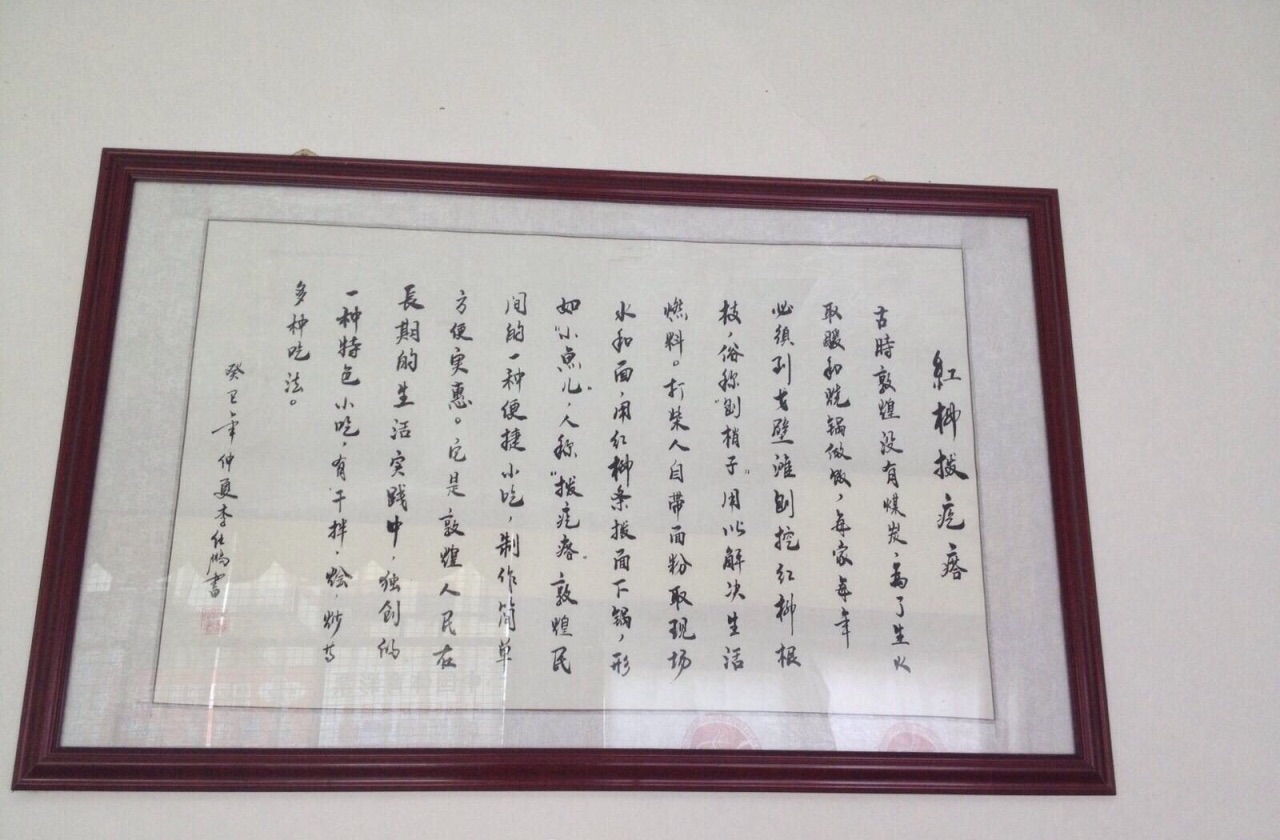 紅柳拔疙瘩
古時敦煌没有煤炭，為了生火
取暖和烧锅做饭，每家每年
必須到戈壁滩刨挖红柳根
枝，俗称“刨梢子”用以解决生活
燃料。打柴人自带面粉取现场
水和面，用红柳条拨面下锅，形
如“小魚儿”，人称“拨疙瘩”敦煌民
间的一种便捷小吃，制作简单
方便实惠。它是敦煌人民在
長期的生活实践中，独创的
一种特色小吃，有干拌，烩，炒等
多种吃法。
癸巳年仲夏李仕鵬書